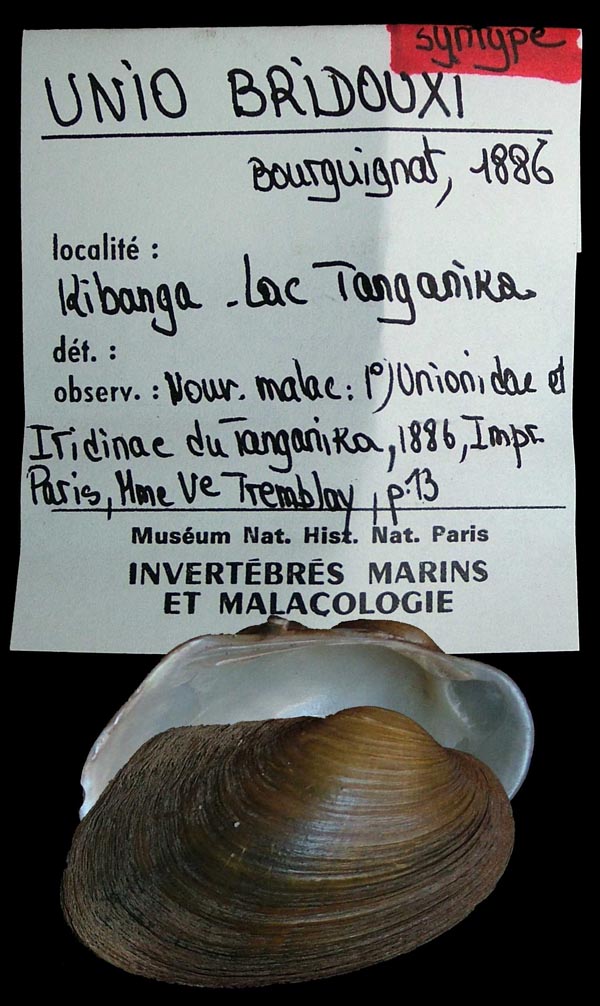 syntype
UNIO BRIDOUXI
Bourguignat, 1886
localité :
Kibanga - Lac Tanganika
dét. :
observ. : Nouv. malac : 1°) Unionidae et
Iridinae du Tanganika, 1886, Impr.
Paris, Mme Ve Tremblay, p.13
Muséum Nat. Hist. Nat. Paris
INVERTÉBRÉS MARINS
ET MALACOLOGIE